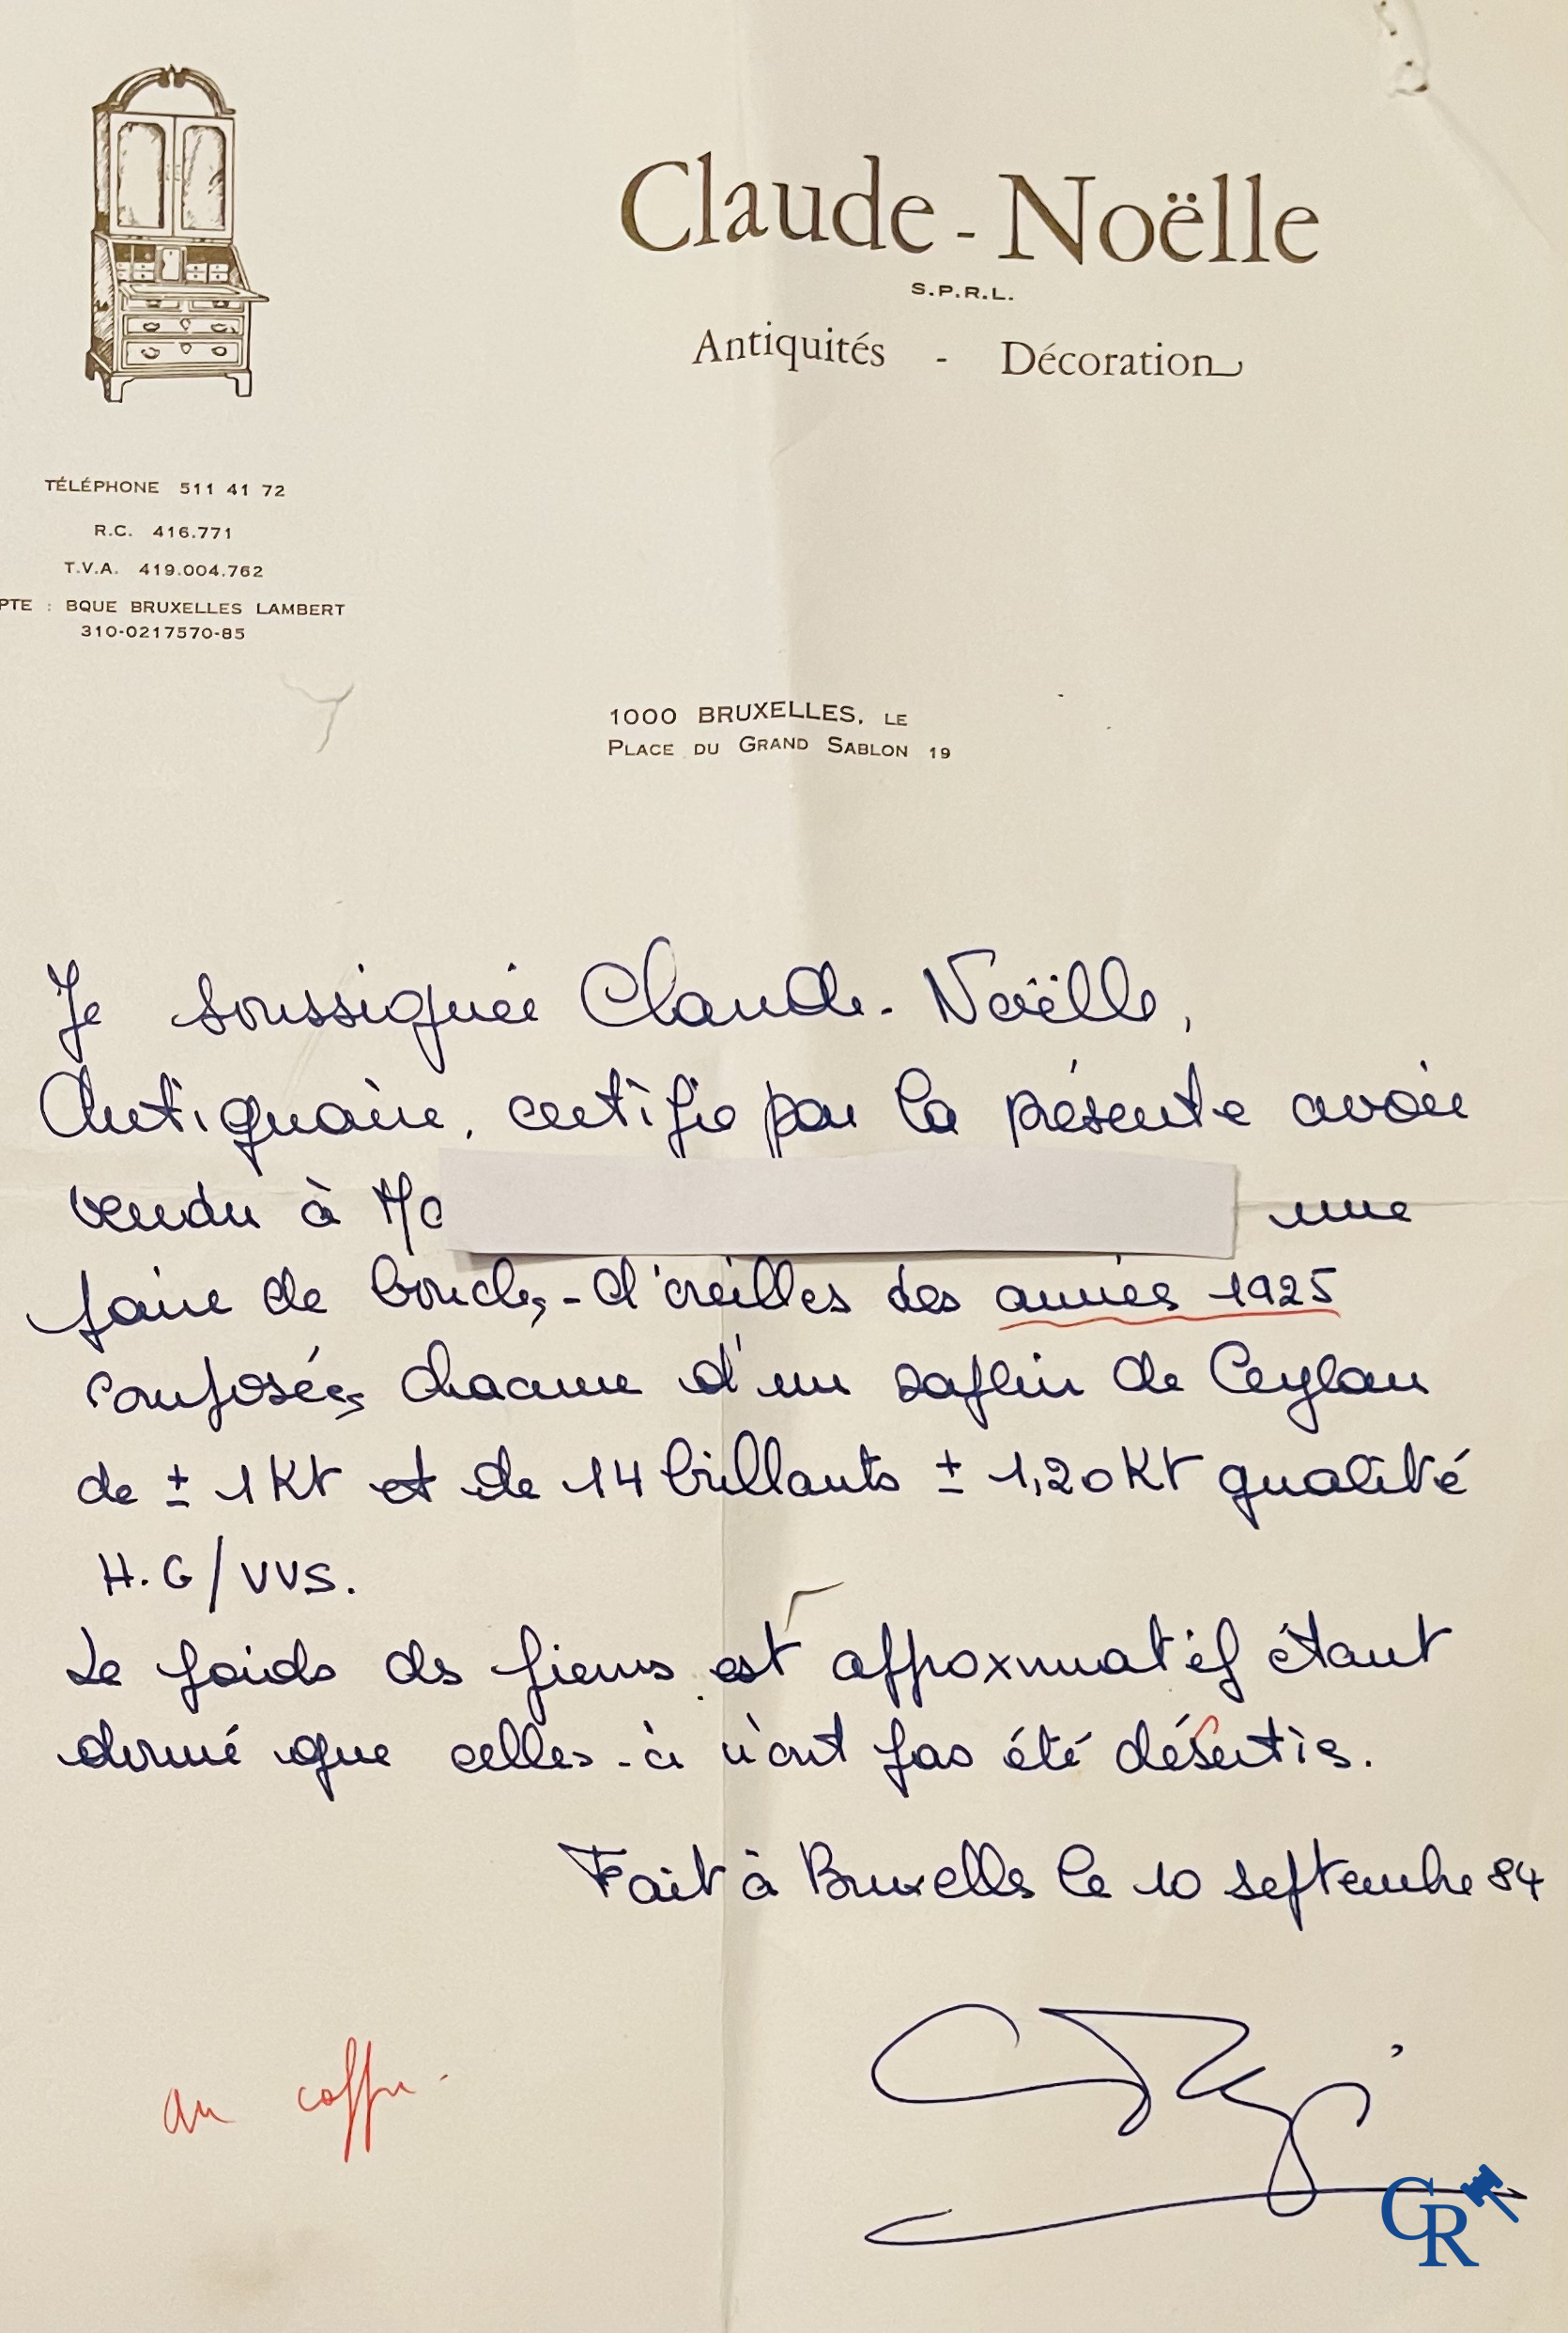 Claude - Noëlle
S.P.R.L.
Antiquités - Décoration
TÉLÉPHONE 511 41 72
R.C. 416.771
T.V.A. 419.004.762
PTE : BQUE BRUXELLES LAMBERT
310-0217570-85
1000 BRUXELLES, LE
PLACE DU GRAND SABLON 19
Je soussignée Claude-Noëlle,
Antiquaire, certifie par la présente avoir
vendu à une
paire de boucles-d'oreilles des années 1925
composées chacune d'un saphir de Ceylan
de ± 1 Kt et de 14 brillants ± 1,20 Kt qualité
H.G/VVS.
Le poids des pierres est approximatif étant
donné que celles-ci n'ont pas été désertis.
Fait à Bruxelles le 10 septembre 84
au coffre.
CR